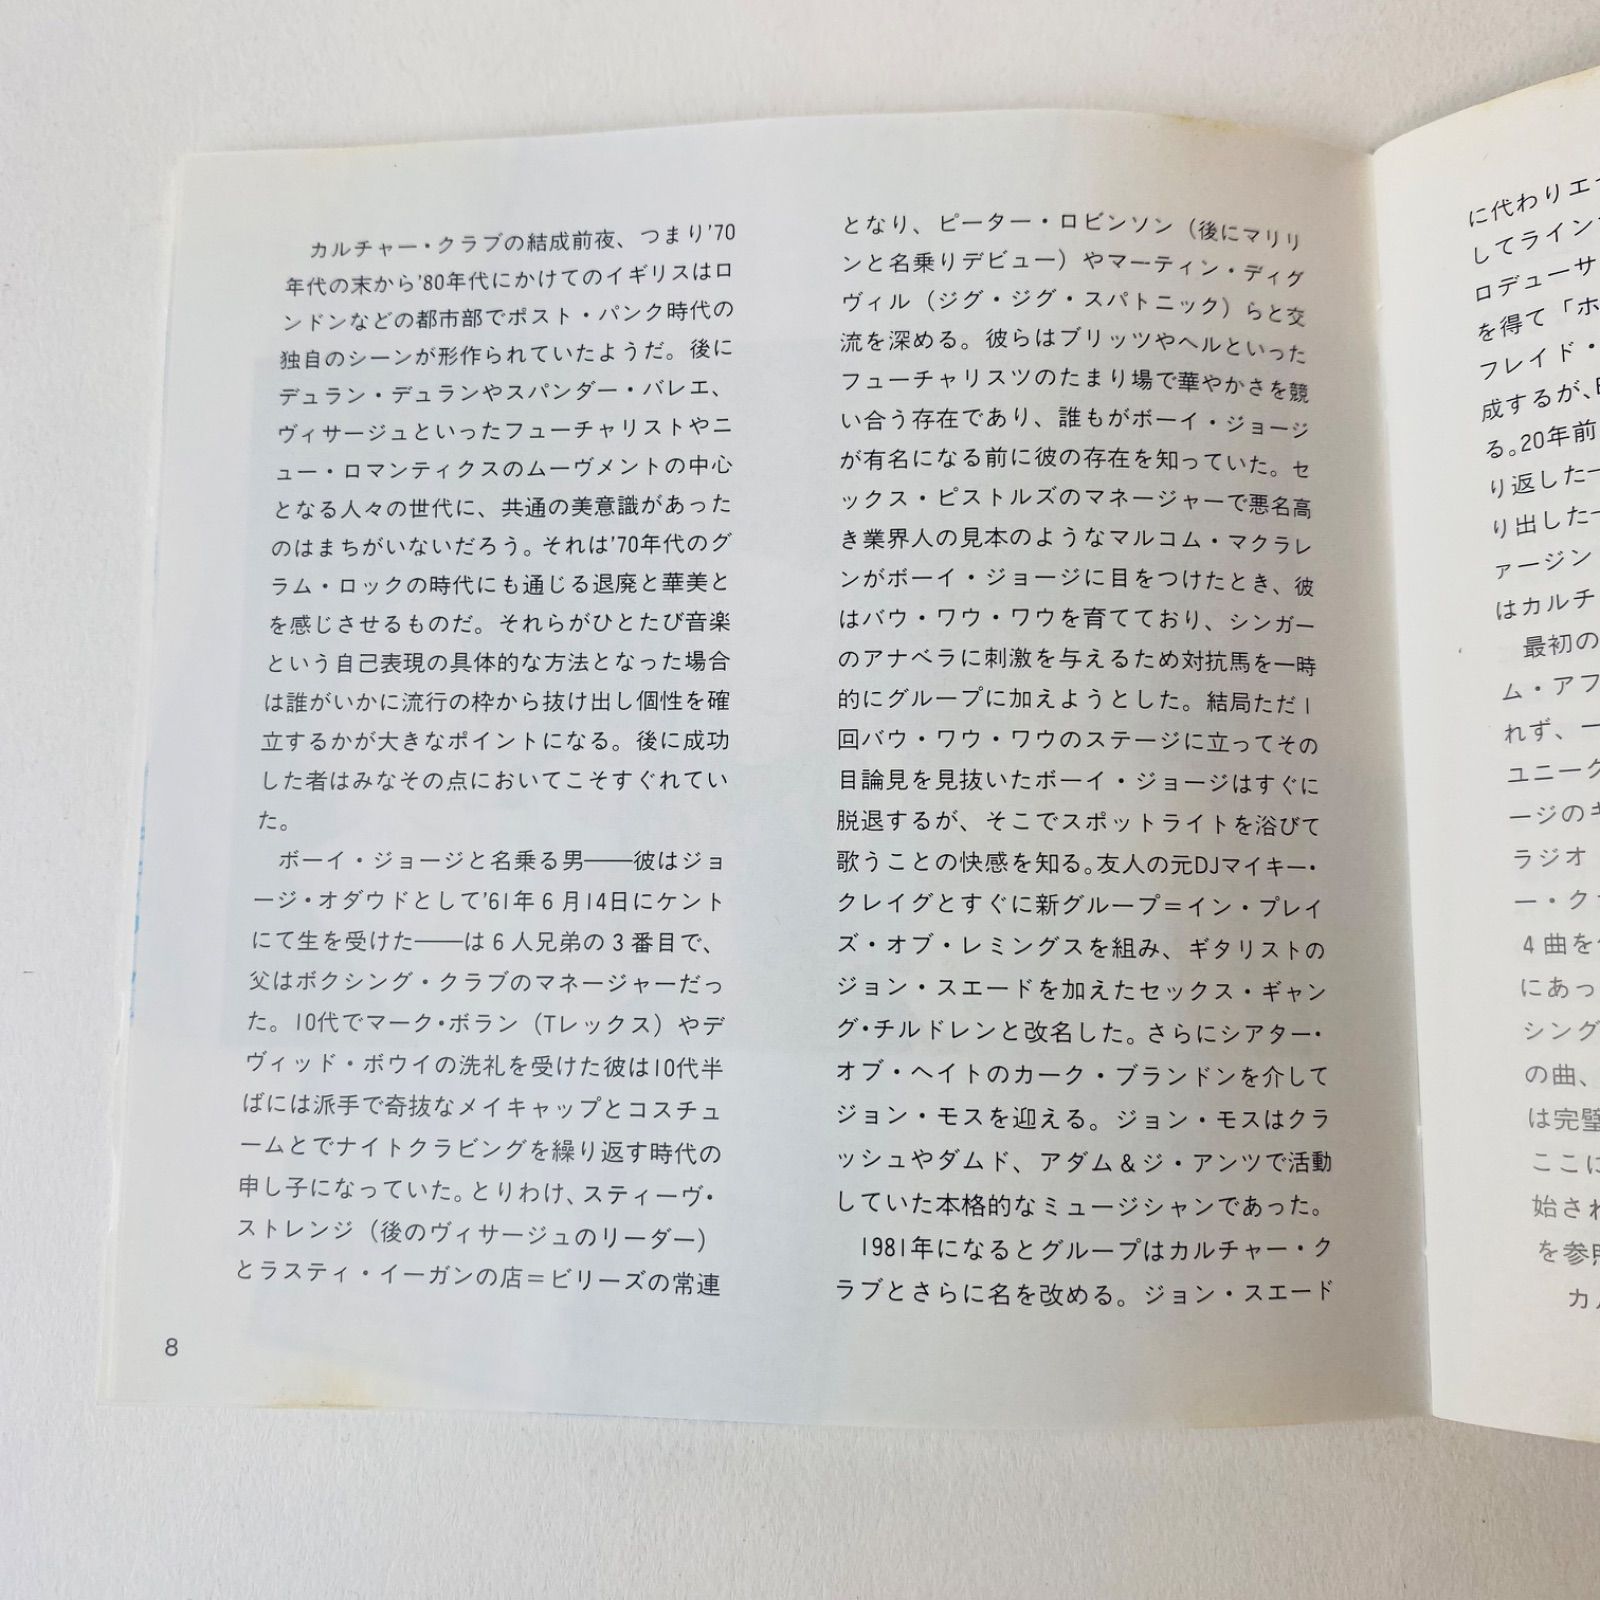 カルチャー・クラブの結成前夜、つまり'70
年代の末から'80年代にかけてのイギリスはロ
ンドンなどの都市部でポスト・パンク時代の
独自のシーンが形作られていたようだ。後に
デュラン・デュランやスパンダー・バレエ、
ヴィサージュといったフューチャリストやニ
ュー・ロマンティクスのムーヴメントの中心
となる人々の世代に、共通の美意識があった
のはまちがいないだろう。それは'70年代のグ
ラム・ロックの時代にも通じる退廃と華美と
を感じさせるものだ。それらがひとたび音楽
という自己表現の具体的な方法となった場合
は誰がいかに流行の枠から抜け出し個性を確
立するかが大きなポイントになる。後に成功
した者はみなその点においてこそすぐれてい
た。
ボーイ・ジョージと名乗る男——彼はジョ
ージ・オダウドとして'61年6月14日にケント
にて生を受けた——は6人兄弟の3番目で、
父はボクシング・クラブのマネージャーだっ
た。10代でマーク・ボラン（Tレックス）やデ
ヴィッド・ボウイの洗礼を受けた彼は10代半
ばには派手で奇抜なメイキャップとコスチュ
ームとでナイトクラビングを繰り返す時代の
申し子になっていた。とりわけ、スティーヴ・
ストレンジ（後のヴィサージュのリーダー）
とラスティ・イーガンの店＝ビリーズの常連
8
となり、ピーター・ロビンソン（後にマリリ
ンと名乗りデビュー）やマーティン・ディグ
ヴィル（ジグ・ジグ・スパトニック）らと交
流を深める。彼らはブリッツやヘルといった
フューチャリスツのたまり場で華やかさを競
い合う存在であり、誰もがボーイ・ジョージ
が有名になる前に彼の存在を知っていた。セ
ックス・ピストルズのマネージャーで悪名高
き業界人の見本のようなマルコム・マクラレ
ンがボーイ・ジョージに目をつけたとき、彼
はバウ・ワウ・ワウを育てており、シンガー
のアナベラに刺激を与えるため対抗馬を一時
的にグループに加えようとした。結局ただ1
回バウ・ワウ・ワウのステージに立ってその
目論見を見抜いたボーイ・ジョージはすぐに
脱退するが、そこでスポットライトを浴びて
歌うことの快感を知る。友人の元DJマイキー・
クレイグとすぐに新グループ＝イン・プレイ
ズ・オブ・レミングスを組み、ギタリストの
ジョン・スエードを加えたセックス・ギャン
グ・チルドレンと改名した。さらにシアター・
オブ・ヘイトのカーク・ブランドンを介して
ジョン・モスを迎える。ジョン・モスはクラ
ッシュやダムド、アダム＆ジ・アンツで活動
していた本格的なミュージシャンであった。
1981年になるとグループはカルチャー・ク
ラブとさらに名を改める。ジョン・スエード
に代わりエ
してライン
ロデューサ
を得て「ホ
フレイド・
成するが、
る。20年前
り返した
り出した
ァージン
はカルチ
最初の
ム・アフ
れず、一
ユニーク
ージのキ
ラジオ
ー・ク
4曲を
にあっ
シング
の曲、
は完璧
ここに
始され
を参照
カル